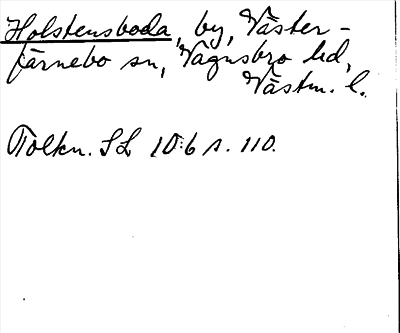 Holstensboda, by, Väster-
färnebo sn, Vagnsbro hd,
Västm. l.
Tolkn. SL 10:6 s. 110.